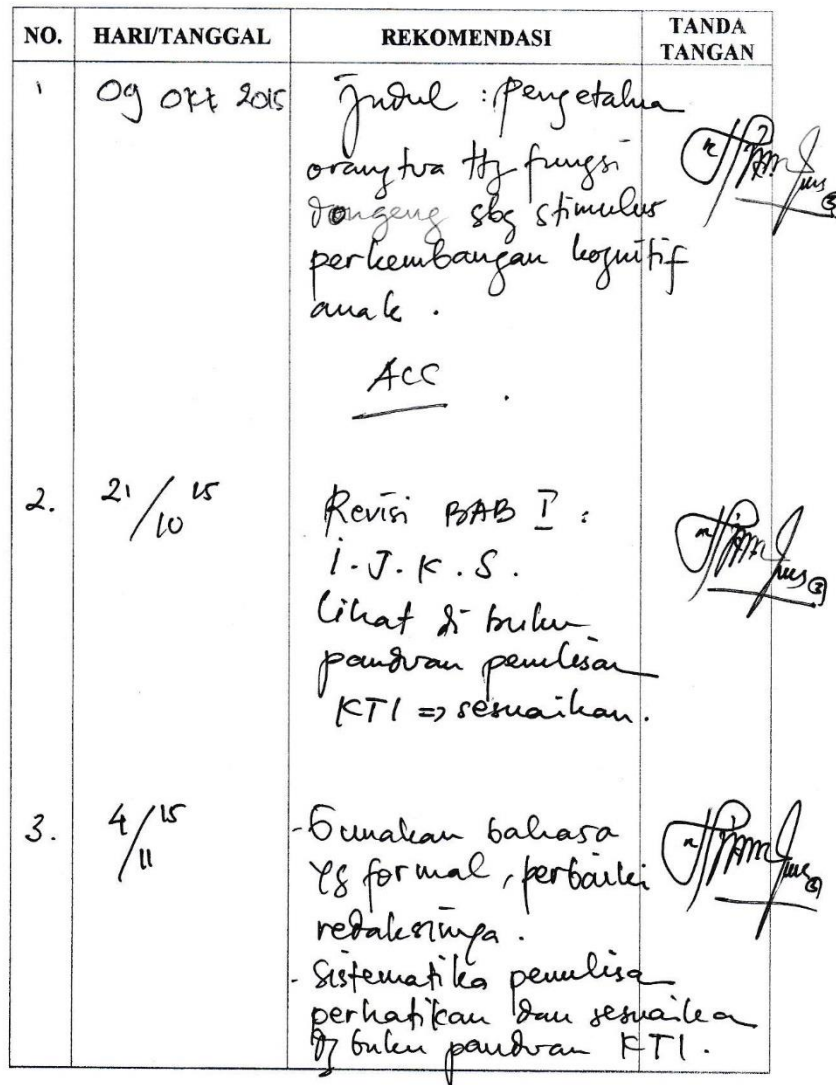 NO. HARI/TANGGAL REKOMENDASI TANDA TANGAN
1 09 Okt 2015 Judul : Pengetahua
orangtua ttg fungsi
dongeng sbg stimulus
perkembangan kognitif
anak .
ACC .
2. 21/10 15 Revisi BAB I :
I . J . K . S .
Lihat di buku
panduan penulisan
KTI => sesuaikan .
3. 4/11 15 - Gunakan bahasa
yg formal , perbaiki
redaksinya .
- Sistematika penulisa
perhatikan dan sesuaika
dg buku panduan KTI .